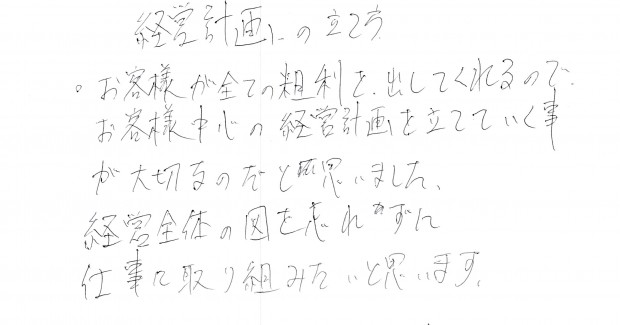 経営計画の立て方
。お客様が全ての粗利を、出してくれるので、
お客様中心の経営計画を立てていく事
が大切なのだと思いました、
経営全体の図を忘れずに
仕事に取り組みたいと思います。